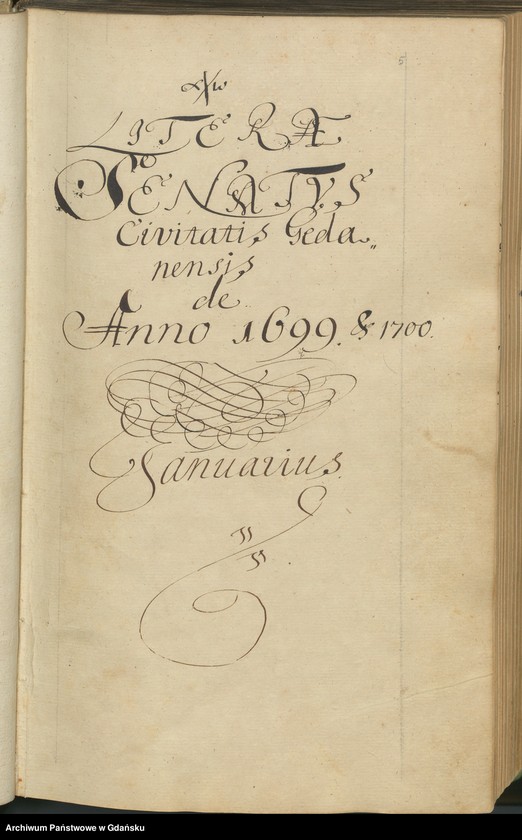 5
LITERÆ
SENATVS
Civitatis Geda„
nensis
de
Anno 1699. & 1700.
Januarius.
Archiwum Państwowe w Gdańsku